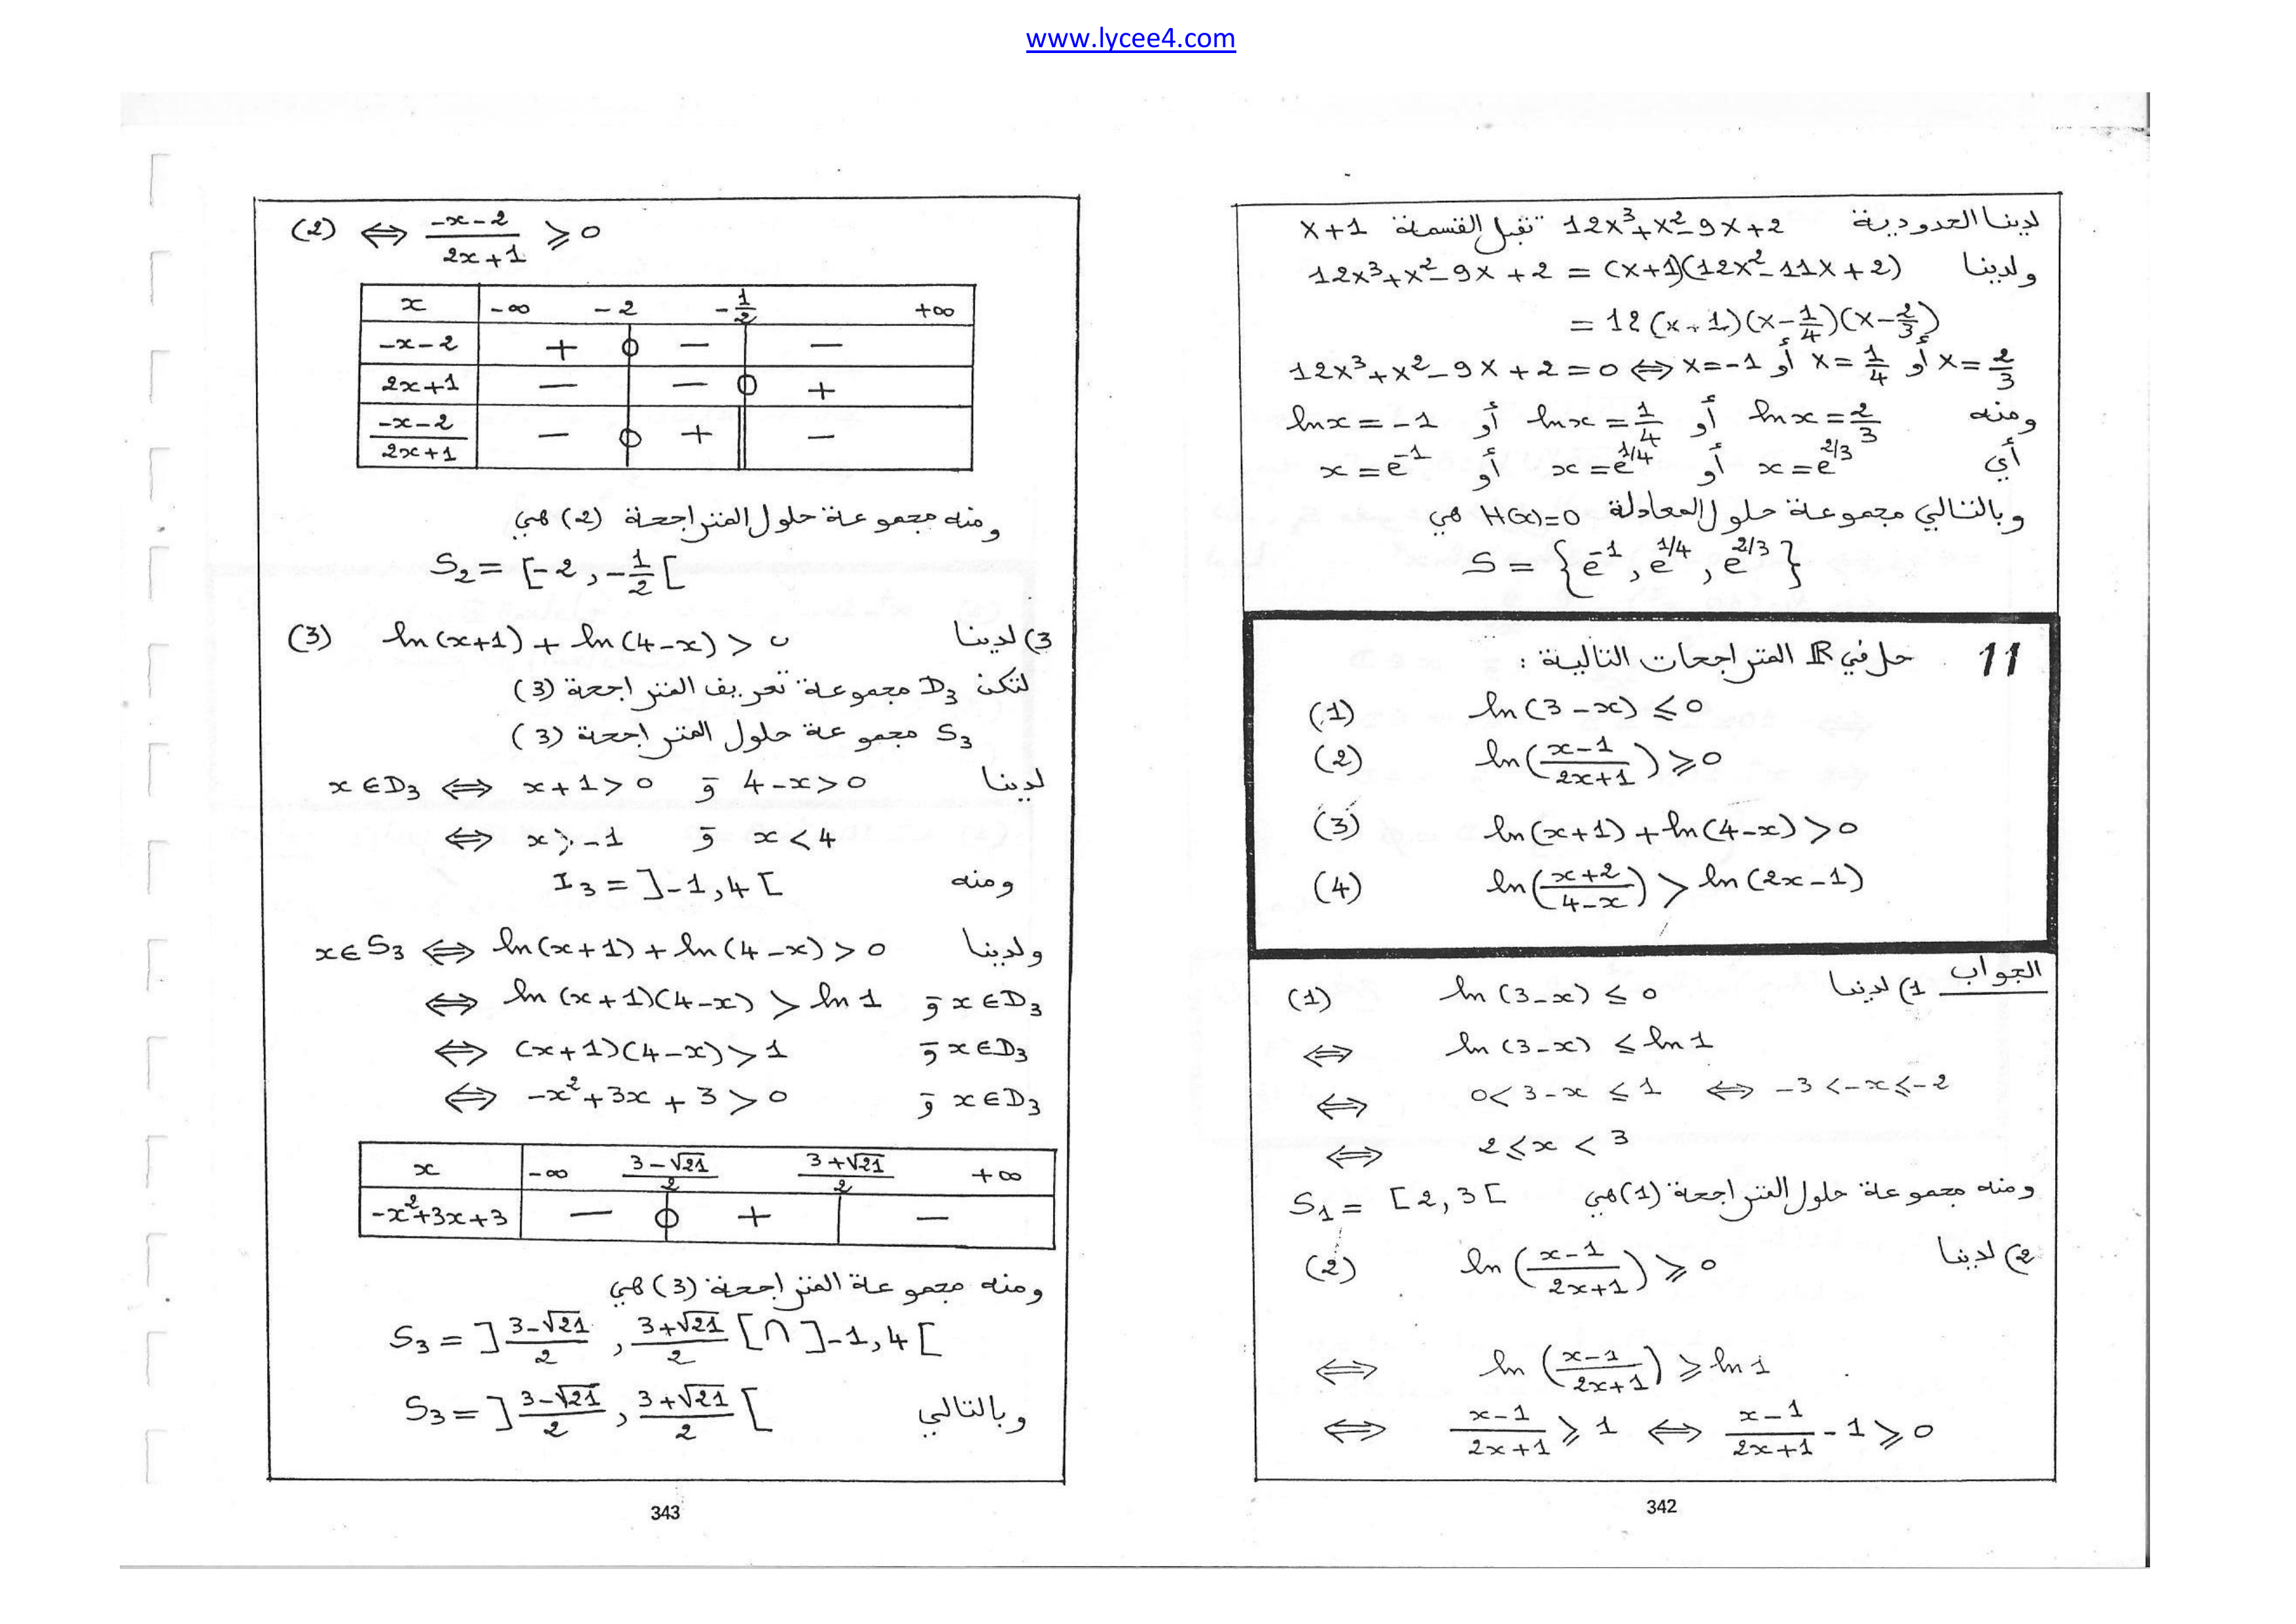 www.lycee4.com
لدينا الحدودية 12x³+x²-9x+2 تقبل القسمة x+1
ولدينا 12x³+x²-9x+2 = (x+1)(12x²-11x+2)
= 12(x+1)(x-1/4)(x-2/3)
12x³+x²-9x+2=0 ⇔ x=-1 أو x=1/4 أو x=2/3
ومنه lnx=-1 أو lnx=1/4 أو lnx=2/3
أي x=e⁻¹ أو x=e^{1/4} أو x=e^{2/3}
وبالتالي مجموعة حلول المعادلة H(x)=0 هي
S = {e⁻¹, e^{1/4}, e^{2/3}}
11 حل في ℝ المتراجحات التالية :
(1) ln(3-x) ⩽ 0
(2) ln((x-1)/(2x+1)) ⩾ 0
(3) ln(x+1)+ln(4-x) > 0
(4) ln((x+2)/(4-x)) > ln(2x-1)
الجواب 1) لدينا ln(3-x) ≤ 0 (1)
⇔ ln(3-x) ≤ ln1
⇔ 0<3-x ≤ 1 ⇔ -3<-x⩽-2
⇔ 2⩽x<3
ومنه مجموعة حلول المتراجحة (1) هي S₁ = [2,3[
2) لدينا ln((x-1)/(2x+1)) ⩾ 0 (2)
⇔ ln((x-1)/(2x+1)) ⩾ ln1
⇔ (x-1)/(2x+1) ⩾ 1 ⇔ (x-1)/(2x+1) - 1 ⩾ 0
342
(2) ⇔ (-x-2)/(2x+1) ⩾ 0
x -∞ -2 -1/2 +∞
-x-2 + 0 - -
2x+1 - - 0 +
(-x-2)/(2x+1) - 0 + || -
ومنه مجموعة حلول المتراجحة (2) هي
S₂ = [-2, -1/2[
3) لدينا ln(x+1)+ln(4-x) > 0 (3)
لتكن D₃ مجموعة تعريف المتراجحة (3)
S₃ مجموعة حلول المتراجحة (3)
لدينا x∈D₃ ⇔ x+1>0 و 4-x>0
⇔ x>-1 و x<4
ومنه I₃ = ]-1,4[
ولدينا x∈S₃ ⇔ ln(x+1)+ln(4-x) > 0
⇔ ln(x+1)(4-x) > ln1 و x∈D₃
⇔ (x+1)(4-x) > 1 و x∈D₃
⇔ -x²+3x+3 > 0 و x∈D₃
x -∞ (3-√21)/2 (3+√21)/2 +∞
-x²+3x+3 - 0 + -
ومنه مجموعة المتراجحة (3) هي
S₃ = ](3-√21)/2, (3+√21)/2[ ∩ ]-1,4[
وبالتالي S₃ = ](3-√21)/2, (3+√21)/2[
343